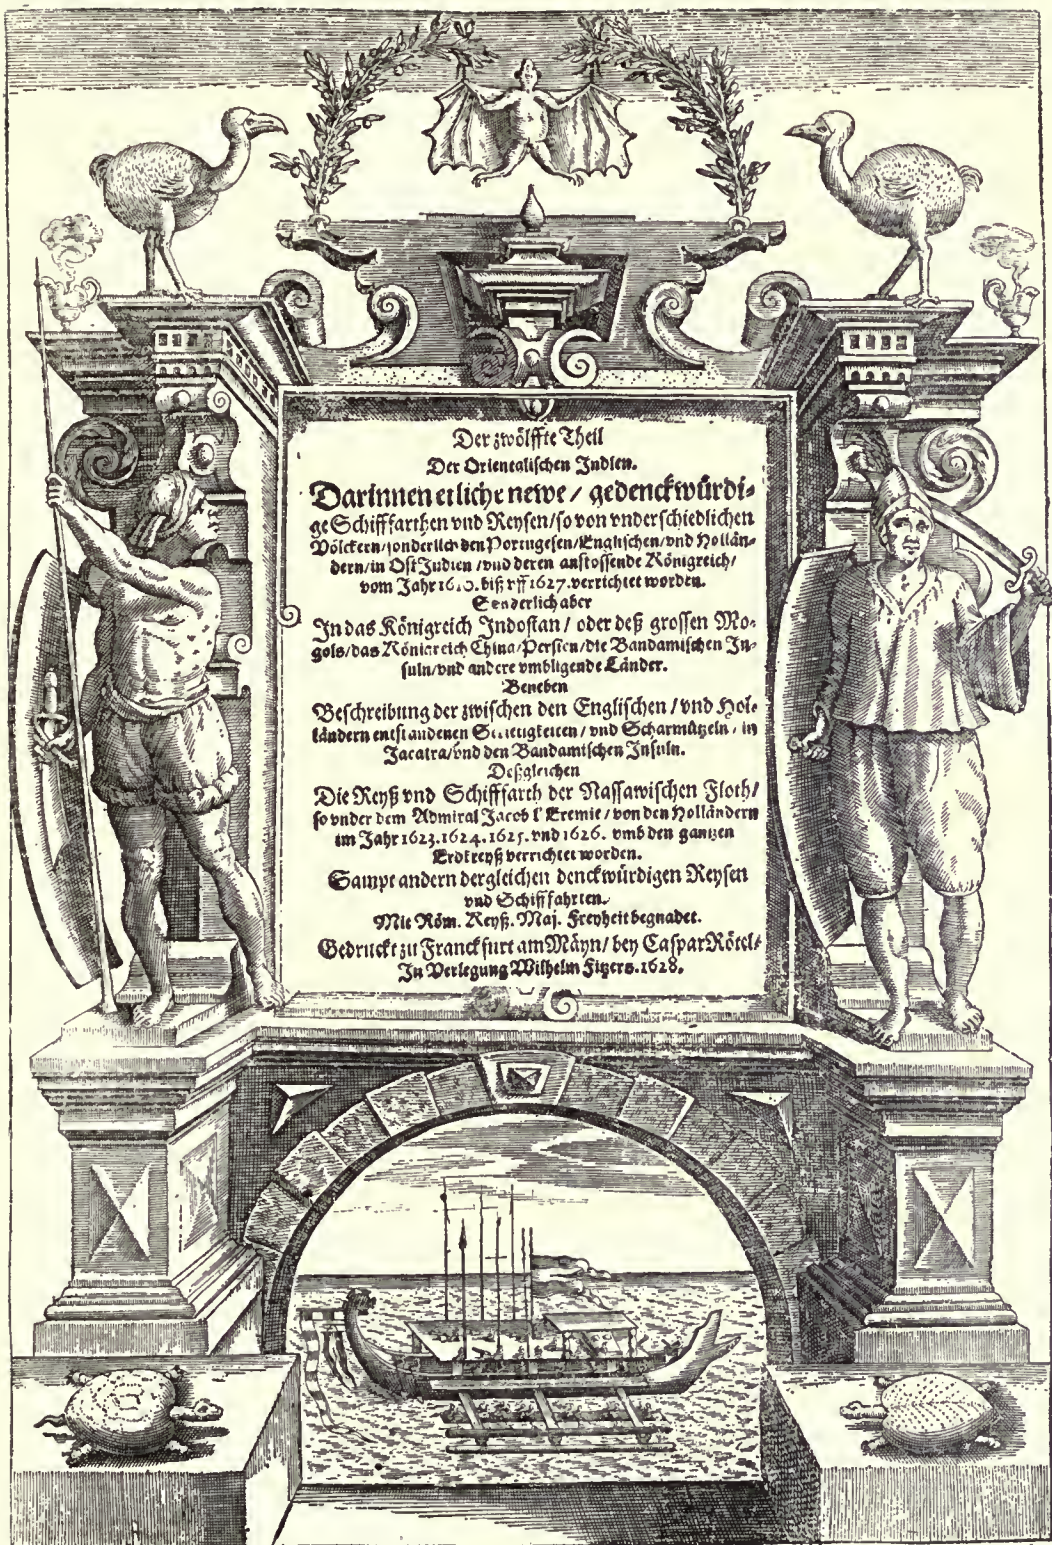 Der zwölffte Theil
Der Orientalischen Indien.
Darinnen etliche newe / gedenckwürdi-
ge Schiffarthen vnd Reysen / so von vnderschiedlichen
Völckern / sonderlich den Portugesen / Englischen / vnd Hollän-
dern / in Ost Indien / vnd deren anstossende Königreich /
vom Jahr 1610. biß vff 1627. verrichtet worden.
Senderlich aber
In das Königreich Indostan / oder deß grossen Mo-
gols / das Königreich China / Persien / die Bandamischen In-
suln / vnd andere vmbligende Länder.
Beneben
Beschreibung der zwischen den Englischen / vnd Hol-
ländern entstandenen / vnd Scharmützeln / in
Jacatra / vnd den Bandamischen Insuln.
Deßgleichen
Die Reyß vnd Schiffarth der Nassawischen Floth /
so vnder dem Admiral Jacob l' Eremit / von den Holländern
im Jahr 1623. 1624. 1625. vnd 1626. vmb den gantzen
Erdkreyß verrichtet worden.
Sampt andern dergleichen denckwürdigen Reysen
vnd Schiffahrten.
Mit Röm. Keyß. Maj. Freyheit begnadet.
Gedruckt zu Franckfurt am Mäyn / bey Caspar Rötel /
In Verlegung Wilhelm Fitzers. 1628.